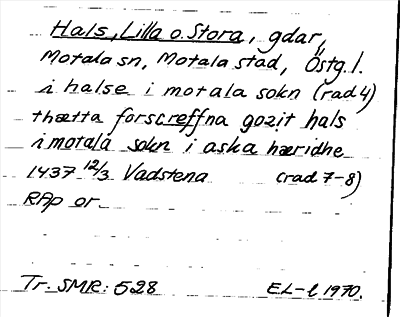 Hals, Lilla o. Stora, gdar,
Motala sn, Motala stad, Östg. l.
i halse i motala sokn (rad 4)
thætta forscreffna gozit hals
i motala sokn i aska hæridhe
1437 12/3 Vadstena (rad 7-8)
RAp or.
Tr. SMR: 528 EL-l 1970.